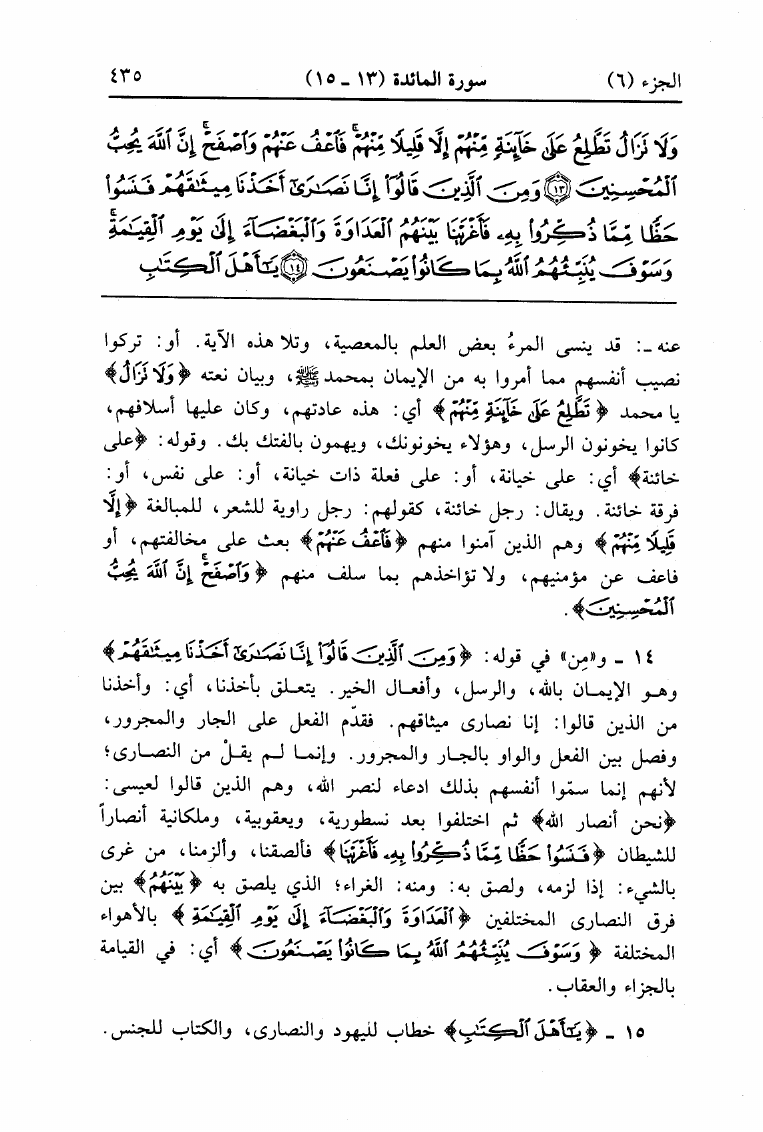 الجزء (٦) سورة المائدة (١٣ ـ ١٥) ٤٣٥
وَلَا تَزَالُ تَطَّلِعُ عَلَىٰ خَآئِنَةٍ مِّنْهُمْ إِلَّا قَلِيلًا مِّنْهُمْ ۖ فَاعْفُ عَنْهُمْ وَاصْفَحْ ۚ إِنَّ اللَّهَ يُحِبُّ
الْمُحْسِنِينَ ﴿١٣﴾ وَمِنَ الَّذِينَ قَالُوٓا۟ إِنَّا نَصَـٰرَىٰٓ أَخَذْنَا مِيثَـٰقَهُمْ فَنَسُوا۟
حَظًّا مِّمَّا ذُكِّرُوا۟ بِهِۦ فَأَغْرَيْنَا بَيْنَهُمُ الْعَدَاوَةَ وَالْبَغْضَآءَ إِلَىٰ يَوْمِ الْقِيَـٰمَةِ ۚ
وَسَوْفَ يُنَبِّئُهُمُ اللَّهُ بِمَا كَانُوا۟ يَصْنَعُونَ ﴿١٤﴾ يَـٰٓأَهْلَ الْكِتَـٰبِ
عنه ـ: قد ينسى المرءُ بعض العلم بالمعصية، وتلا هذه الآية. أو: تركوا
نصيب أنفسهم مما أمروا به من الإيمان بمحمد ﷺ، وبيان نعته ﴿وَلَا تَزَالُ﴾
يا محمد ﴿تَطَّلِعُ عَلَىٰ خَآئِنَةٍ مِّنْهُمْ﴾ أي: هذه عادتهم، وكان عليها أسلافهم،
كانوا يخونون الرسل، وهؤلاء يخونونك، ويهمون بالفتك بك. وقوله: ﴿على
خائنة﴾ أي: على خيانة، أو: على فعلة ذات خيانة، أو: على نفس، أو:
فرقة خائنة. ويقال: رجل خائنة، كقولهم: رجل راوية للشعر، للمبالغة ﴿إِلَّا
قَلِيلًا مِّنْهُمْ﴾ وهم الذين آمنوا منهم ﴿فَاعْفُ عَنْهُمْ﴾ بعث على مخالفتهم، أو
فاعف عن مؤمنيهم، ولا تؤاخذهم بما سلف منهم ﴿وَاصْفَحْ ۚ إِنَّ اللَّهَ يُحِبُّ
الْمُحْسِنِينَ﴾.
١٤ ـ و«مِن» في قوله: ﴿وَمِنَ الَّذِينَ قَالُوٓا۟ إِنَّا نَصَـٰرَىٰٓ أَخَذْنَا مِيثَـٰقَهُمْ﴾
وهو الإيمان بالله، والرسل، وأفعال الخير. يتعلق بأخذنا، أي: وأخذنا
من الذين قالوا: إنا نصارى ميثاقهم. فقدّم الفعل على الجار والمجرور،
وفصل بين الفعل والواو بالجار والمجرور. وإنما لم يقلْ من النصارى؛
لأنهم إنما سمّوا أنفسهم بذلك ادعاء لنصر الله، وهم الذين قالوا لعيسى:
﴿نحن أنصار الله﴾ ثم اختلفوا بعد نسطورية، ويعقوبية، وملكانية أنصاراً
للشيطان ﴿فَنَسُوا۟ حَظًّا مِّمَّا ذُكِّرُوا۟ بِهِۦ فَأَغْرَيْنَا﴾ فألصقنا، وألزمنا، من غرى
بالشيء: إذا لزمه، ولصق به: ومنه: الغراء؛ الذي يلصق به ﴿بَيْنَهُمُ﴾ بين
فرق النصارى المختلفين ﴿الْعَدَاوَةَ وَالْبَغْضَآءَ إِلَىٰ يَوْمِ الْقِيَـٰمَةِ﴾ بالأهواء
المختلفة ﴿وَسَوْفَ يُنَبِّئُهُمُ اللَّهُ بِمَا كَانُوا۟ يَصْنَعُونَ﴾ أي: في القيامة
بالجزاء والعقاب.
١٥ ـ ﴿يَـٰٓأَهْلَ الْكِتَـٰبِ﴾ خطاب لليهود والنصارى، والكتاب للجنس.